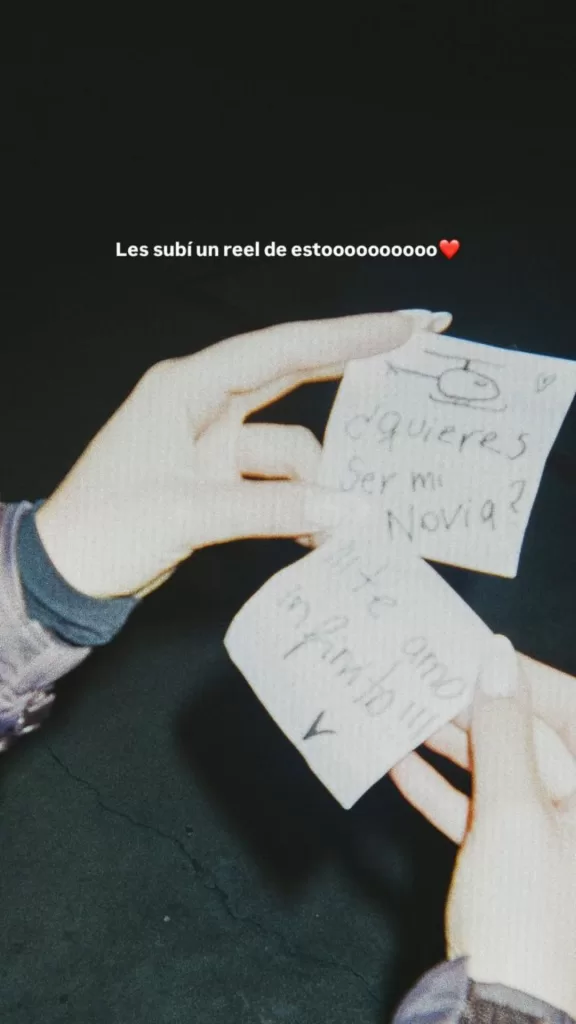 Les subí un reel de estoooooooooo❤️
¿quieres
Ser mi
Novia?
te amo
infinito !!!